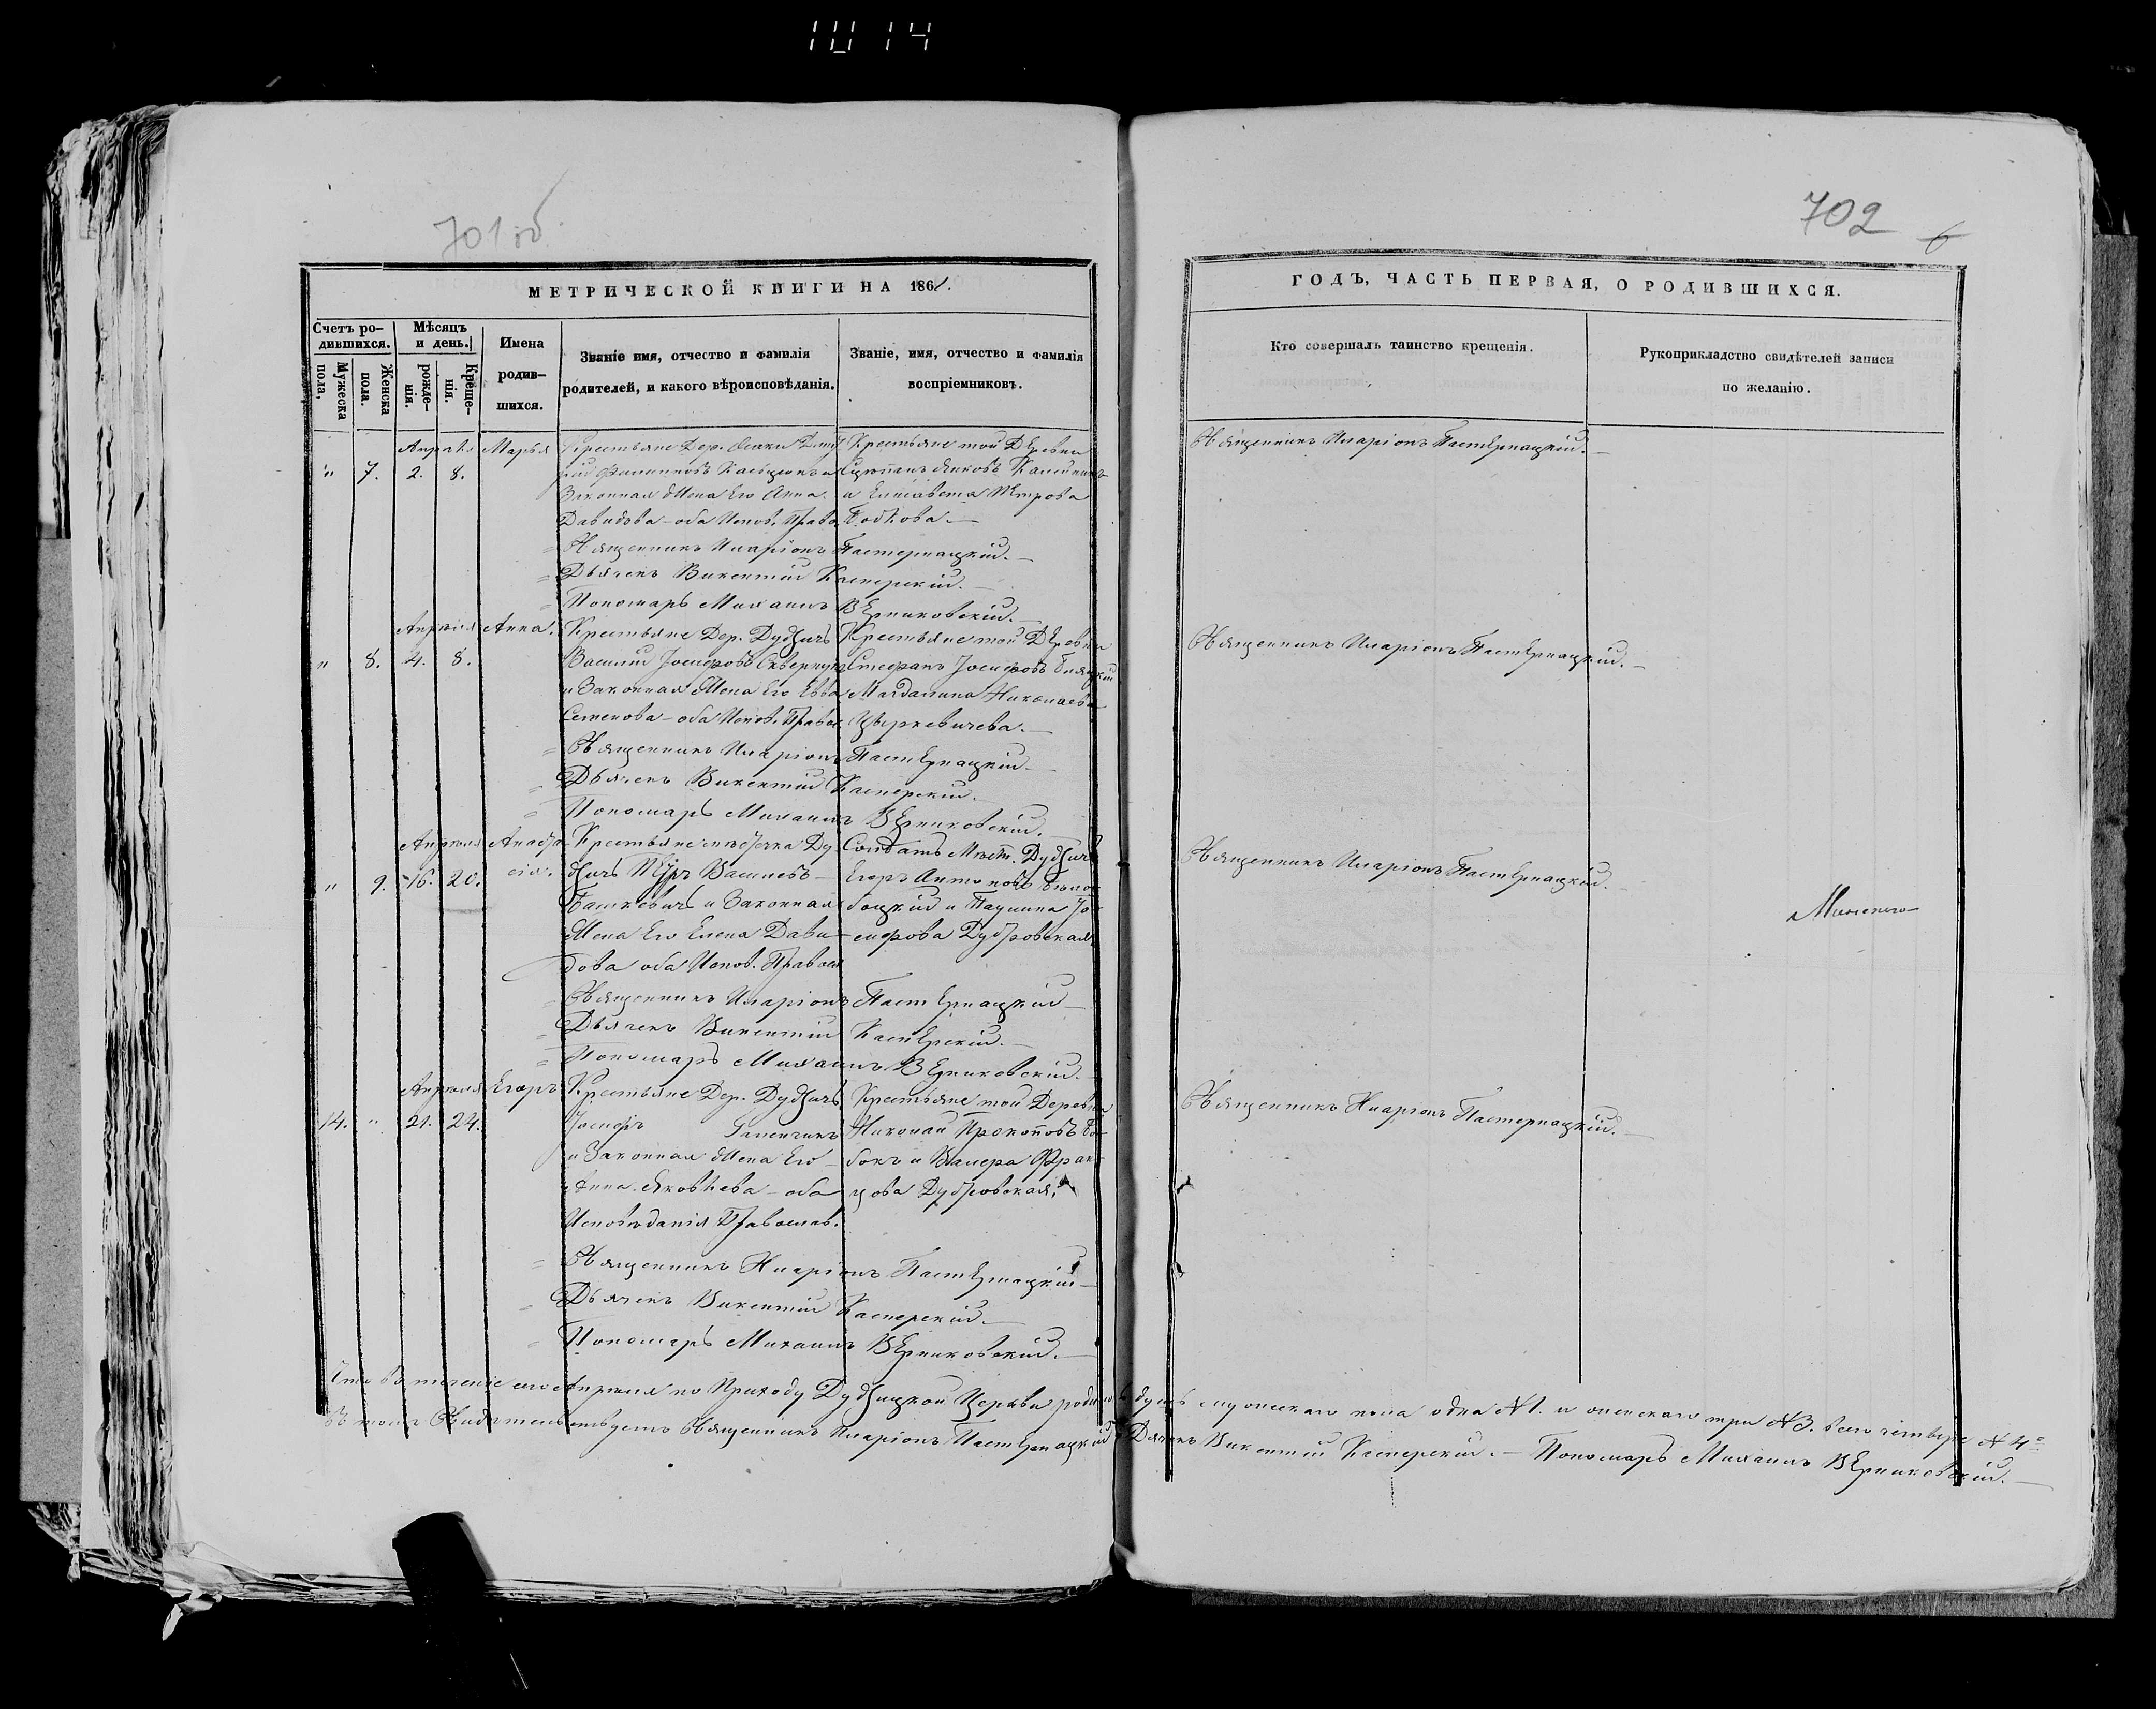 1014
701 об.
МЕТРИЧЕСКОЙ КНИГИ НА 1861.
Счетъ ро-
дившихся.
Мужеска
пола,
Женска
пола.
Мѣсяцъ
и день.
рожде-
нія.
Креще-
нія.
Имена
родив-
шихся.
Званіе имя, отчество и фамилія
родителей, и какого вѣроисповѣданія.
Званіе, имя, отчество и фамилія
воспріемниковъ.
Апрѣля Марья Крестьяне Дер. Крестьяне той Деревни
" 7. 2. 8. Яковъ
Законная Жена Его Анна и Елисавета Петрова
Давидова - оба Испов. Право Бобкова. —
Священникъ Иларіонъ Пастернацкій. —
Дьячекъ Викентій Касперскій. —
Пономарь Михаилъ Верниковскій. —
Апрѣля Анна. Крестьяне Дер. Дудзичъ Крестьяне той Деревни
" 8. 4. 8. Василій Іосифовъ Стефанъ Іосифовъ
и Законная Жена Его Евва Магдалина Николаева
Семенова - оба Испов. Правос Цыркевичева. —
Священникъ Иларіонъ Пастернацкій. —
Дьячекъ Викентій Касперскій. —
Пономарь Михаилъ Верниковскій. —
Апрѣля Анаста- Крестьяне мѣстечка Ду- Солдатъ Мѣст. Дудзичъ
" 9. 16. 20. сія. дзичъ Петръ Васильевъ Егоръ Антоновъ Бѣло-
Башкевичъ и Законная боцкій и Паулина Іо-
Жена Его Елена Дави- сифова Дубровская
дова оба Испов. Правосл
Священникъ Иларіонъ Пастернацкій —
Дьячекъ Викентій Касперскій. —
Пономарь Михаилъ Верниковскій. —
Апрѣля Егоръ Крестьяне Дер. Дудзичъ Крестьяне той Деревни
14. " 21. 24. Іосифъ Николай Прокоповъ Бо-
и Законная Жена Его бокъ и Валера Фран-
Анна Яковлева - оба цова Дубровская.
Исповѣданія Православ.
Священникъ Иларіонъ Пастернацкій —
Дьячекъ Викентій Касперскій. —
Пономарь Михаилъ Верниковскій. —
702
6
ГОДЪ, ЧАСТЬ ПЕРВАЯ, О РОДИВШИХСЯ.
Кто совершалъ таинство крещенія.
Рукоприкладство свидѣтелей записи
по желанію.
Священникъ Иларіонъ Пастернацкій. —
Священникъ Иларіонъ Пастернацкій. —
Священникъ Иларіонъ Пастернацкій. —
Минскаго
Священникъ Иларіонъ Пастернацкій. —
Что въ теченіе сего Апрѣля по Приходу Дудзицкой Церкви родилось душъ мужескаго пола одна №1. и женскаго три №3. всего четыре №4.
въ томъ Свидѣтельствуемъ Священникъ Иларіонъ Пастернацкій Дьячекъ Викентій Касперскій. — Пономарь Михаилъ Верниковскій. —